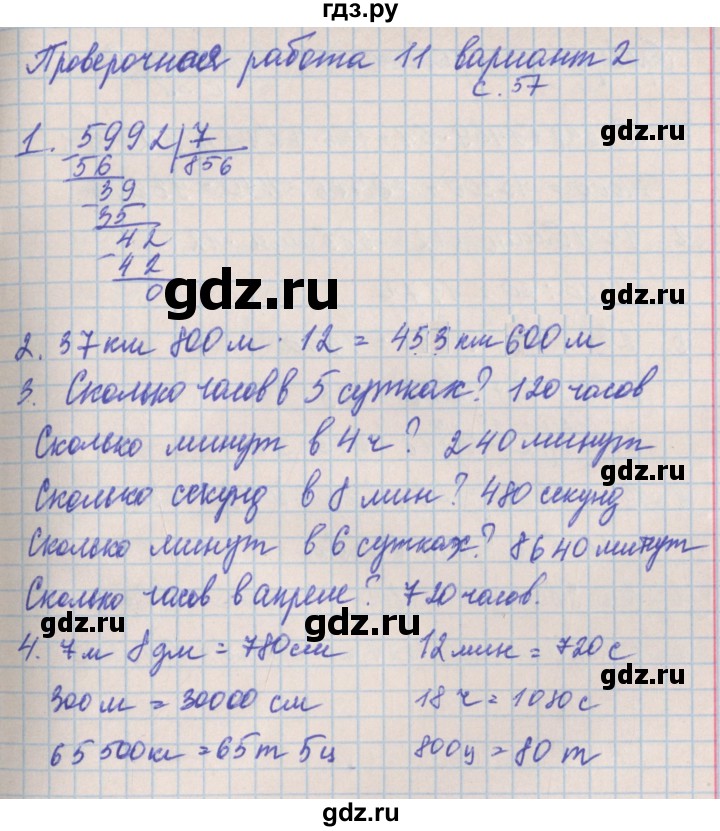 гдз.ру
Проверочная работа 11 вариант 2
с. 57
gdz.ru
1. 5992 | 7
56 856
39
35
42
42
0
gdz.ru
gdz.ru
2. 37 км 800 м · 12 = 453 км 600 м
3. Сколько часов в 5 сутках? 120 часов
Сколько минут в 4 ч? 240 минут
gdz.ru
Сколько секунд в 8 мин? 480 секунд
Сколько минут в 6 сутках? 8640 минут
Сколько часов в апреле? 720 часов.
gdz.ru gdz.ru
4. 7 м 8 дм = 780 см 12 мин = 720 с
gdz.ru
300 м = 30000 см 18 ч = 1080 с
65 500 кг = 65 т 5 ц 800 ц = 80 т
gdz.ru
gdz.ru